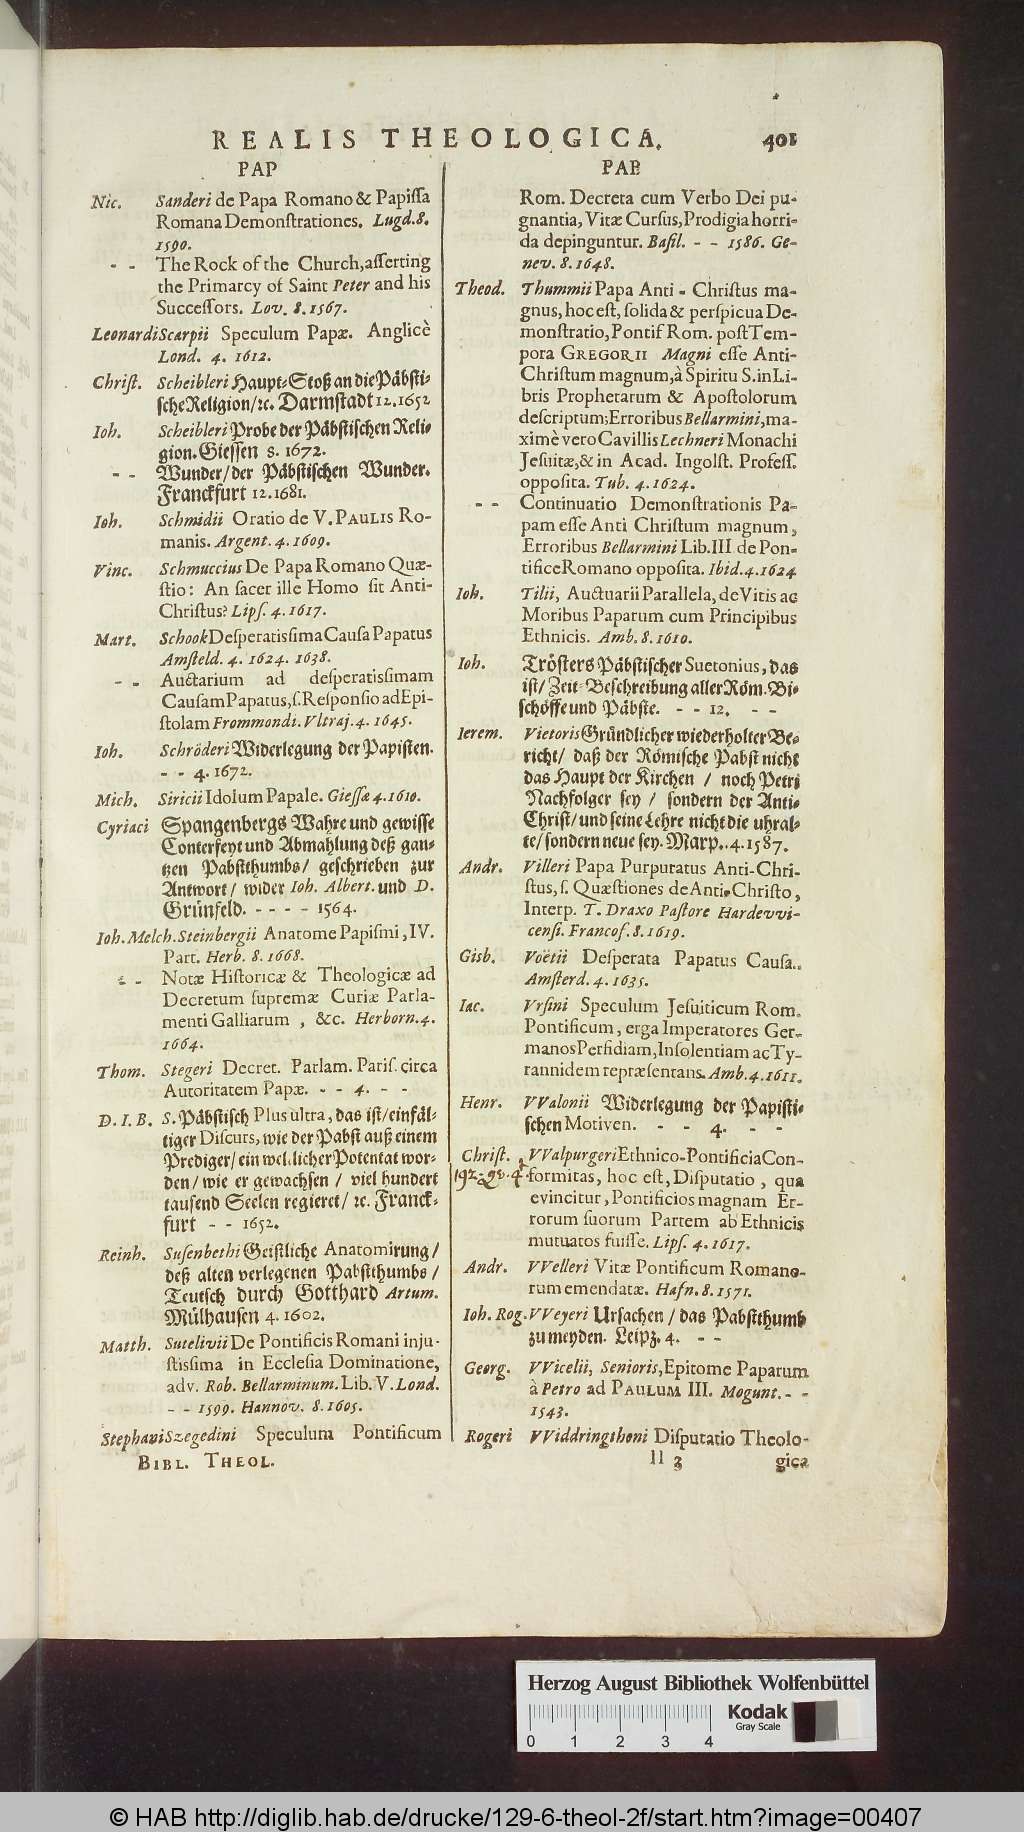 REALIS THEOLOGICA. 401
PAP
Nic. Sanderi de Papa Romano & Papissa
Romana Demonstrationes. Lugd. 8.
1590.
- - The Rock of the Church, asserting
the Primarcy of Saint Peter and his
Successors. Lov. 8. 1567.
Leonardi Scarpii Speculum Papæ. Anglicè
Lond. 4. 1612.
Christ. Scheibleri Haupt-Stoß an die Päbsti-
sche Religion/ ꝛc. Darmstadt 12. 1652
Ioh. Scheibleri Probe der Päbstischen Reli-
gion. Giessen 8. 1672.
- - Wunder/ der Päbstischen Wunder.
Franckfurt 12. 1681.
Ioh. Schmidii Oratio de V. PAULIS Ro-
manis. Argent. 4. 1609.
Vinc. Schmuccius De Papa Romano Quæ-
stio: An sacer ille Homo sit Anti-
Christus? Lips. 4. 1617.
Mart. Schook Desperatissima Causa Papatus
Amsteld. 4. 1624. 1638.
- - Auctarium ad desperatissimam
Causam Papatus, s. Responsio ad Epi-
stolam Frommondi. Vltraj. 4. 1645.
Ioh. Schröderi Widerlegung der Papisten.
- - 4. 1672.
Mich. Siricii Idolum Papale. Giessæ 4. 1610.
Cyriaci Spangenbergs Wahre und gewisse
Conterfeyt und Abmahlung deß gan-
tzen Pabstthumbs/ geschrieben zur
Antwort/ wider Ioh. Albert. und D.
Grünfeld. - - - - 1564.
Ioh. Melch. Steinbergii Anatome Papismi, IV.
Part. Herb. 8. 1668.
- - Notæ Historicæ & Theologicæ ad
Decretum supremæ Curiæ Parla-
menti Galliarum, &c. Herborn. 4.
1664.
Thom. Stegeri Decret. Parlam. Paris. circa
Autoritatem Papæ. - - 4. - -
D. I. B. S. Päbstisch Plus ultra, das ist/ einfäl-
tiger Discurs, wie der Pabst auß einem
Prediger/ ein weltlicher Potentat wor-
den/ wie er gewachsen/ viel hundert
tausend Seelen regieret/ ꝛc. Franck-
furt - - 1652.
Reinh. Susenbethi Geistliche Anatomirung/
deß alten verlegenen Pabstthumbs/
Teutsch durch Gotthard Artum.
Mülhausen 4. 1602.
Matth. Sutelivii De Pontificis Romani inju-
stissima in Ecclesia Dominatione,
adv. Rob. Bellarminum. Lib. V. Lond.
- - 1599. Hannov. 8. 1605.
Stephani Szegedini Speculum Pontificum
BIBL. THEOL.
PAP
Rom. Decreta cum Verbo Dei pu-
gnantia, Vitæ Cursus, Prodigia horri-
da depinguntur. Basil. - - 1586. Ge-
nev. 8. 1648.
Theod. Thummii Papa Anti-Christus ma-
gnus, hoc est, solida & perspicua De-
monstratio, Pontif Rom. post Tem-
pora GREGORII Magni esse Anti-
Christum magnum, à Spiritu S. in Li-
bris Prophetarum & Apostolorum
descriptum; Erroribus Bellarmini, ma-
ximè vero Cavillis Lechneri Monachi
Jesuitæ, & in Acad. Ingolst. Profess.
opposita. Tub. 4. 1624.
- - Continuatio Demonstrationis Pa-
pam esse Anti Christum magnum,
Erroribus Bellarmini Lib. III de Pon-
tifice Romano opposita. Ibid. 4. 1624
Ioh. Tilii, Auctuarii Parallela, de Vitis ac
Moribus Paparum cum Principibus
Ethnicis. Amb. 8. 1610.
Ioh. Trösters Päbstischer Suetonius, das
ist/ Zeit-Beschreibung aller Röm. Bi-
schöffe und Päbste. - - 12. - -
Ierem. Vietoris Gründlicher wiederholter Be-
richt/ daß der Römische Pabst nicht
das Haupt der Kirchen/ noch Petri
Nachfolger sey/ sondern der Anti-
Christ/ und seine Lehre nicht die uhral-
te/ sondern neue sey. Marp. 4. 1587.
Andr. Villeri Papa Purpuratus Anti-Chri-
stus, s. Quæstiones de Anti-Christo,
Interp. T. Draxo Pastore Hardevvi-
censi. Francof. 8. 1619.
Gisb. Voëtii Desperata Papatus Causa.
Amsterd. 4. 1635.
Iac. Vrsini Speculum Jesuiticum Rom.
Pontificum, erga Imperatores Ger-
manos Perfidiam, Insolentiam ac Ty-
rannidem repræsentans. Amb. 4. 1611.
Henr. VValonii Widerlegung der Papisti-
schen Motiven. - - 4. - -
Christ. VValpurgeri Ethnico-Pontificia Con-
formitas, hoc est, Disputatio, qua
evincitur, Pontificios magnam Er-
rorum suorum Partem ab Ethnicis
mutuatos fuisse. Lips. 4. 1617.
Andr. VVelleri Vitæ Pontificum Romano-
rum emendatæ. Hafn. 8. 1571.
Ioh. Rog. VVeyeri Ursachen/ das Pabstthumb
zu meyden. Leipz. 4. - -
Georg. VVicelii, Senioris, Epitome Paparum
à Petro ad PAULUM III. Mogunt. - -
1543.
Rogeri VViddringthoni Disputatio Theolo-
ll 3 gica
Herzog August Bibliothek Wolfenbüttel
Kodak
Gray Scale
0 1 2 3 4
© HAB http://diglib.hab.de/drucke/129-6-theol-2f/start.htm?image=00407